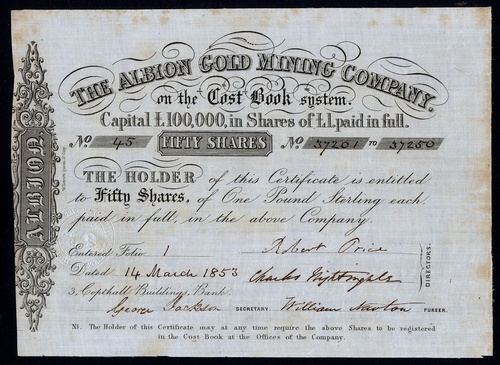 THE ALBION GOLD MINING COMPANY.
on the Cost Book system.
Capital £100,000, in Shares of £1. paid in full.
No 45 FIFTY SHARES No 37201 TO 37250
THE HOLDER of this Certificate is entitled
to Fifty Shares, of One Pound Sterling each,
paid in full, in the above Company.
Entered Folio 1 Robert Price
Dated 14 March 1853 Charles Nightingale
DIRECTORS.
3, Copthall Buildings, Bank.
George Jackson SECRETARY. William Newton PURSER.
NB. The Holder of this Certificate may at any time require the above Shares to be registered
in the Cost Book at the Offices of the Company.
ALBION